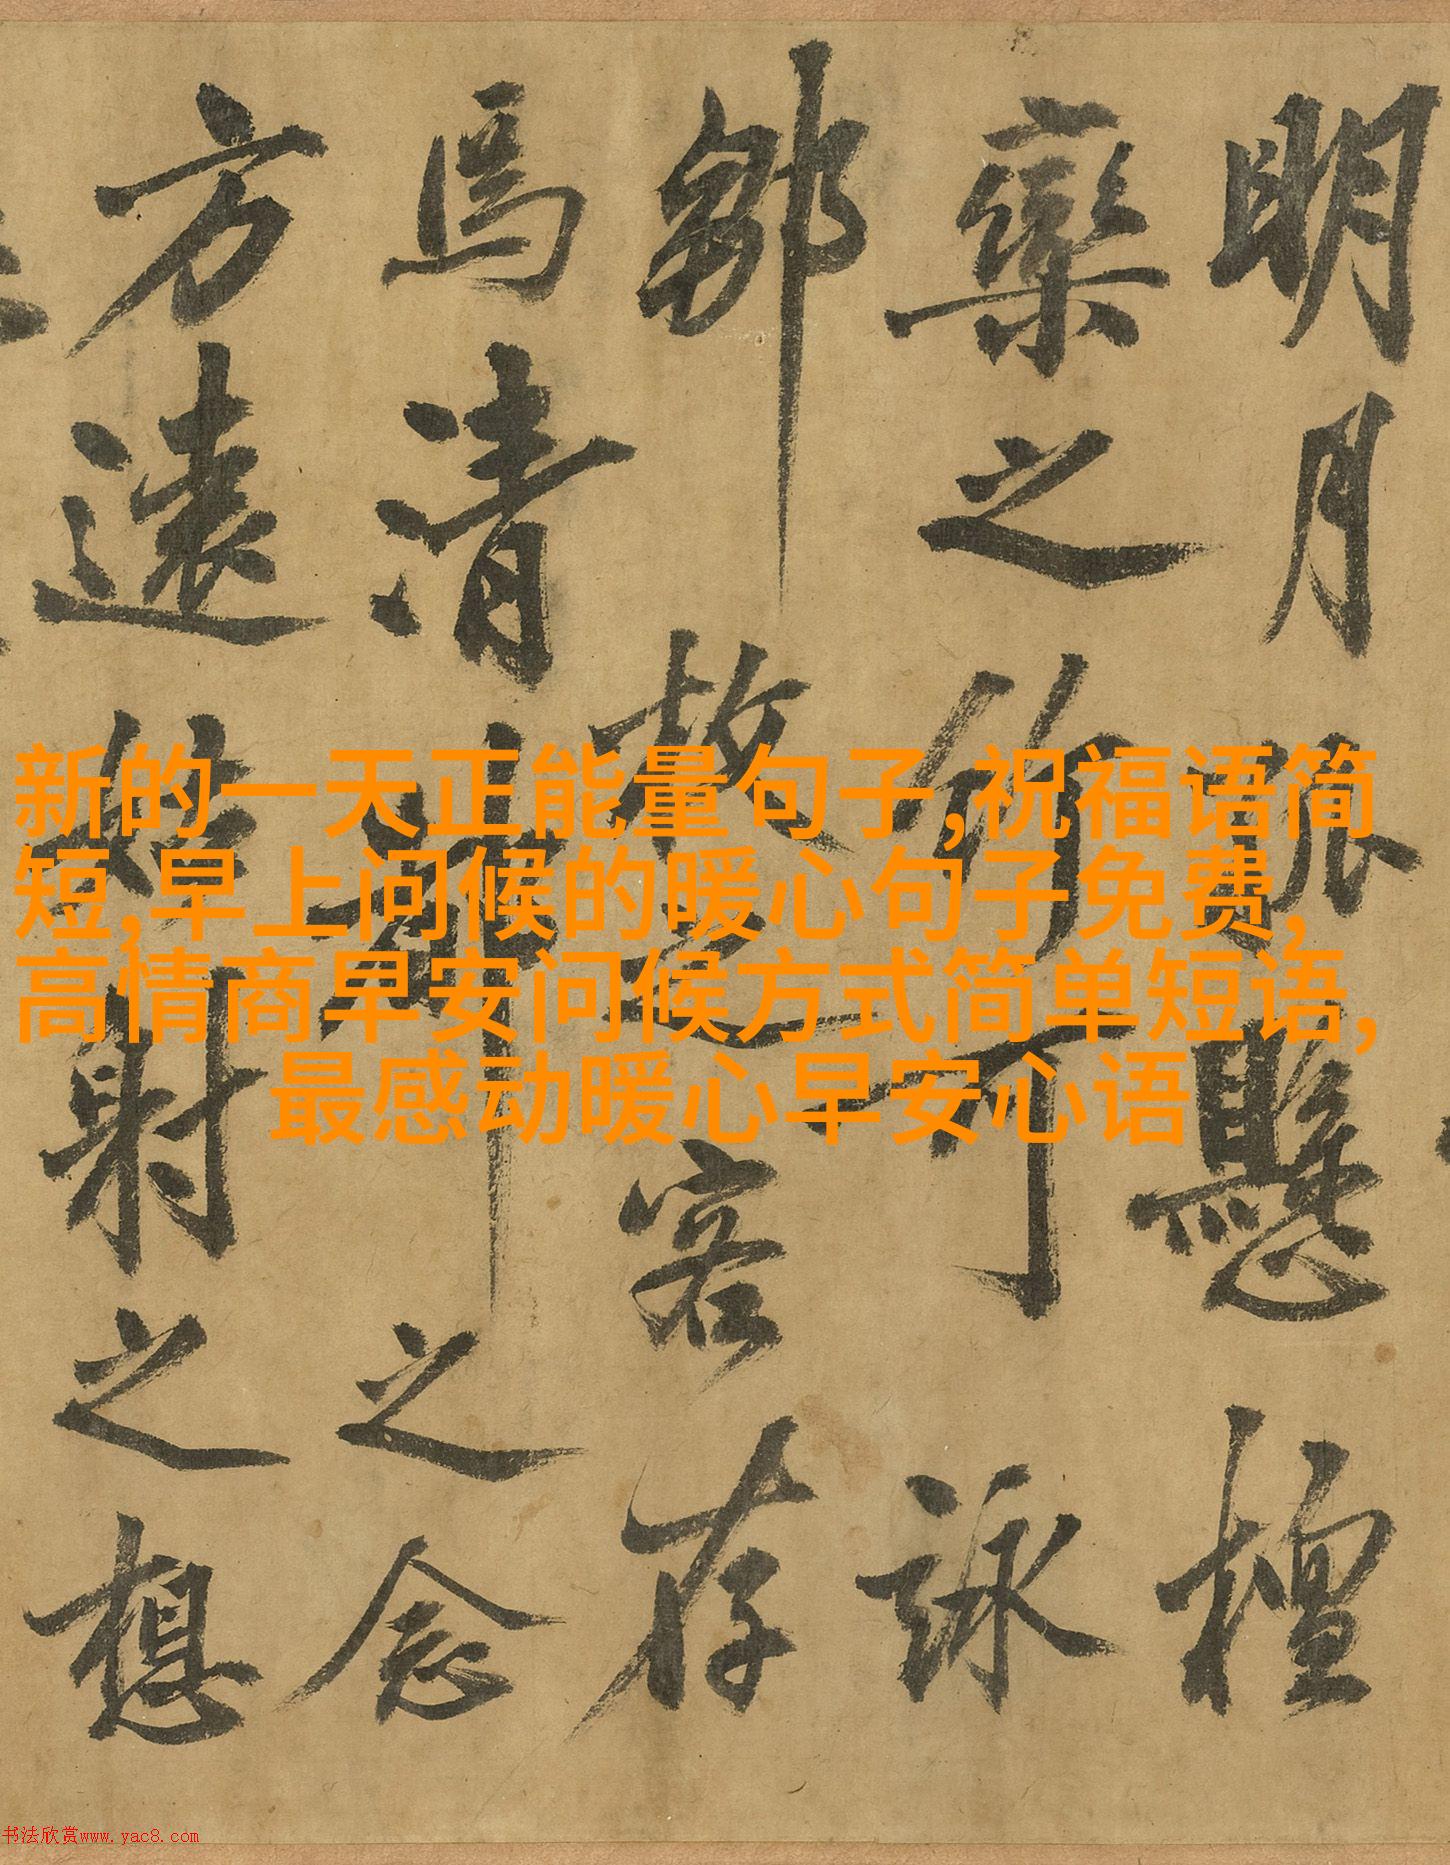 明月懸檀
欒之竹可詠
鄒枚之客存
焉清之念
方遠姑射之想
新的一天正能量句子,祝福语简
短,早上问候的暖心句子免费,
高情商早安问候方式简单短语,
最感动暖心早安心语
书法欣赏www.yac8.com